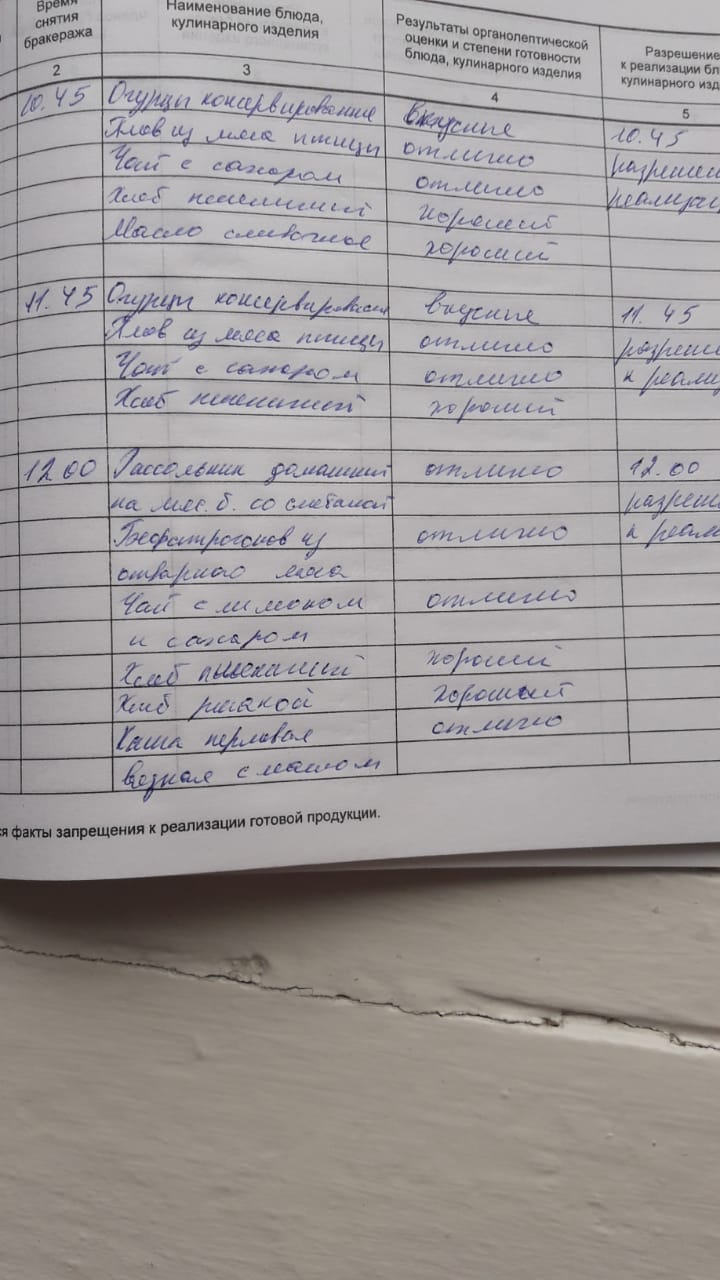 Время
снятия
бракеража
Наименование блюда,
кулинарного изделия
Результаты органолептической
оценки и степени готовности
блюда, кулинарного изделия
Разрешение
к реализации бл
кулинарного изд
2 3 4 5
10.45 Огурцы консервирование вкусные 10.45
Плов из мяса птицы отлично разрешен
Чай с сахаром отлично реализац
Хлеб пшеничный хороший
Масло сливочное хороший
11.45 Огурцы консервирован вкусные 11.45
Плов из мяса птицы отлично разреш
Чай с сахаром отлично к реализ
Хлеб пшеничный хороший
12.00 Рассольник домашний отлично 12.00
на мяс. б. со сметаной разреш
Бефстрогонов из отлично к реал
отварного мяса
Чай с лимоном отлично
и сахаром
Хлеб пшеничный хороший
Хлеб ржаной хороший
Каша перловая отлично
вязкая с маслом
ся факты запрещения к реализации готовой продукции.